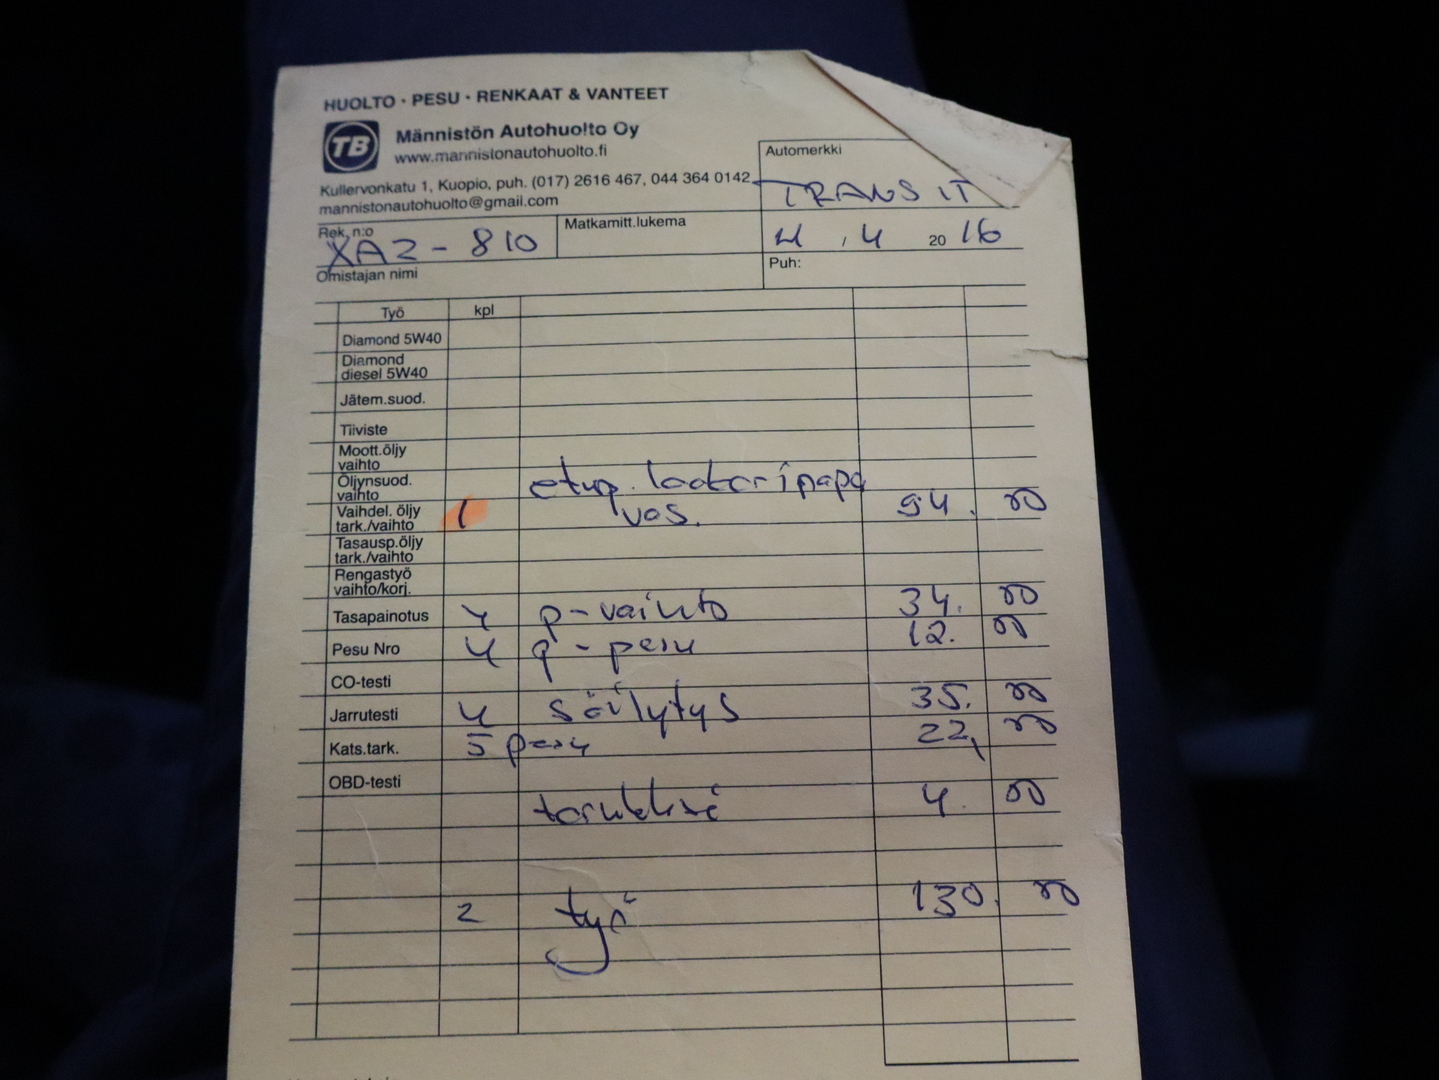 HUOLTO · PESU · RENKAAT & VANTEET
TB Männistön Autohuolto Oy
www.mannistonautohuolto.fi
Kullervonkatu 1, Kuopio, puh. (017) 2616 467, 044 364 0142
mannistonautohuolto@gmail.com
Automerkki
TRANSIT
Rek. n:o
XAZ-810
Matkamitt.lukema
4.4 2016
Omistajan nimi
Puh:
Työ kpl
Diamond 5W40
Diamond
diesel 5W40
Jätem.suod.
Tiiviste
Moott.öljy
vaihto
Öljynsuod.
vaihto
etup.
Vaihdel. öljy
tark./vaihto
1 vas. 94. 00
Tasausp.öljy
tark./vaihto
Rengastyö
vaihto/korj.
Tasapainotus 4 p-vaihto 34. 00
Pesu Nro 4 p-pesu 12. 00
CO-testi
Jarrutesti 4 säilytys 35. 00
Kats.tark. 5 pesu 22, 00
OBD-testi
4. 00
2 työ 130. 00